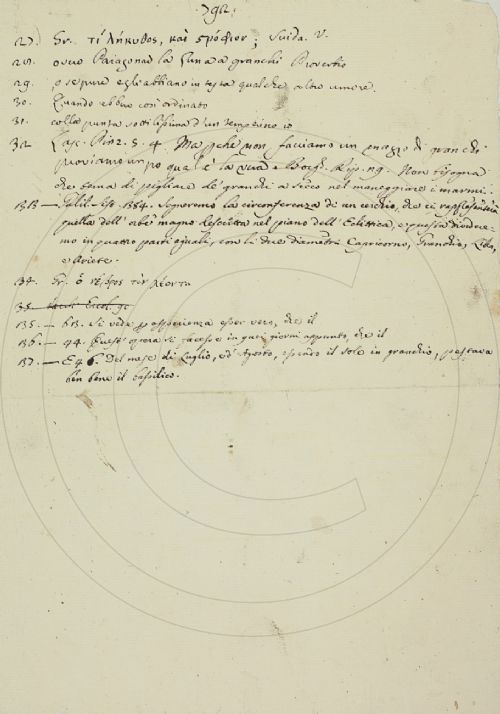 792.
27. Gr. τί λήκυθος, καὶ στρόφιον; Suida. V.
28. ovvero Paragonar la Luna a' granchi Proverbio
29. o sepure egli abbiano in testa qualche altro umore.
30. Quando ebbuo così ordinato
31. colla punta sottilissima d'un temperino io
32. Lasc. Pinz. 5. 4. Ma perchè non facciamo un mazzo di granchi
proviamo un po qual è la vera e Borgh. Rip. 119. Non bisogna
che tema di pigliare de' granchi a secco nel maneggiare i marmi.
133 — Galil. Sist. 384. Segneremo la circonferenza di un cerchio, che ci rappresenti
quella dell'orbe magno descritta nel piano dell'Eclittica, e questa divideremo
in quattro parti eguali, con li due diametri Capricorno, Granchio, Libra,
e Ariete.
134. Gr. ὁ νέβρος τὸν λέοντα
135. Eccl. 9c
135. — 63. Si vede per esperienza esser vero, che il
136. — 44. Quest' opera si facesse in que' giorni appunto, che il
137. — E 46. Del mese di Luglio, ed Agosto, essendo il sole in granchio, pestava
ben bene il basilico.